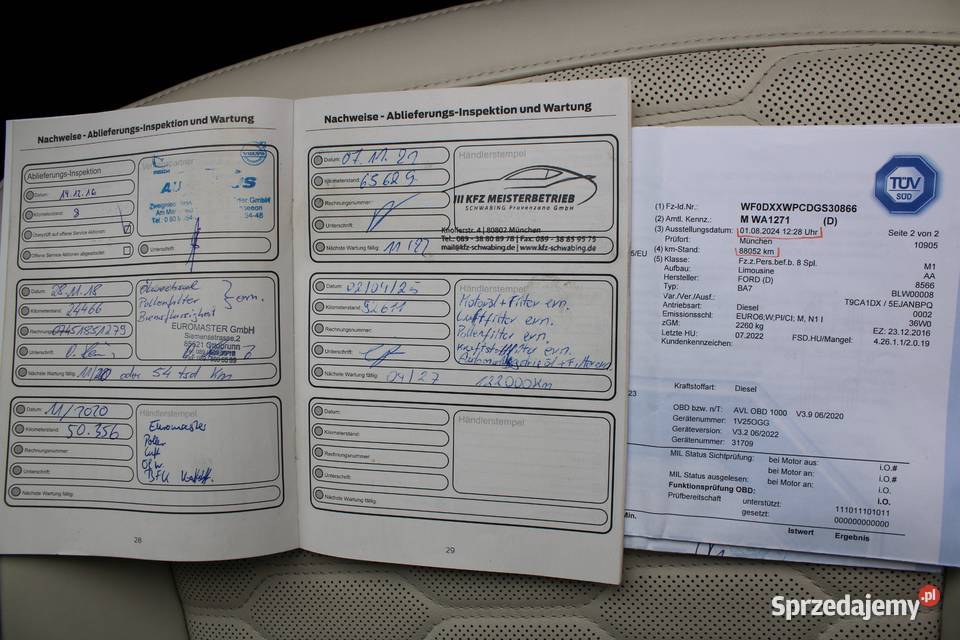 Nachweise - Ablieferungs-Inspektion und Wartung
Ablieferungs-Inspektion
Datum: 14.12.16
Kilometerstand: 8
Überprüft auf offene Service Aktionen:
Offene Service Aktionen abgearbeitet:
Unterschrift:
VOLVO
Am
Datum: 28.11.18
Kilometerstand: 24466
Rechnungsnummer: 07451851279
Unterschrift:
Nächste Wartung fällig: 11/20 oder 54 tsd Km
Ölwechsel
Pollenfilter
Bremsflüssigkeit
ern.
EUROMASTER GmbH
Siemensstrasse 2
85521 Ottobrunn
Datum: 11/2020
Kilometerstand: 50.356
Rechnungsnummer:
Unterschrift:
Nächste Wartung fällig:
Händlerstempel
Euromaster
Pollen
Luft
28
Nachweise - Ablieferungs-Inspektion und Wartung
Datum: 07.11.21
Kilometerstand: 65629
Rechnungsnummer:
Unterschrift:
Nächste Wartung fällig:
Händlerstempel
KFZ MEISTERBETRIEB
SCHWABING Provenzano GmbH
Knollerstr. 4 | 80802 München
Tel.: 089 - 38 80 89 78 | Fax: 089 - 38 85 95 79
mail@kfz-schwabing.de | www.kfz-schwabing.de
Datum: 02/04/25
Kilometerstand: 92611
Rechnungsnummer:
Unterschrift:
Nächste Wartung fällig: 04/27 122000Km
Händlerstempel
Motoröl + Filter ern.
Luftfilter ern.
Pollenfilter ern.
Kraftstofffilter ern.
Automatikgetriebeöl + Filter ern
Datum:
Kilometerstand:
Rechnungsnummer:
Unterschrift:
Nächste Wartung fällig:
Händlerstempel
29
TÜV
SÜD
(1) Fz-Id.Nr.: WF0DXXWPCDGS30866
(2) Amtl. Kennz.: M WA1271 (D)
(3) Ausstellungsdatum: 01.08.2024 12:28 Uhr
Seite 2 von 2
Prüfort: München 10905
(4) km-Stand: 88052 km
(5) Klasse: Fz.z.Pers.bef.b. 8 Spl. M1
5/EU
Aufbau: Limousine AA
Hersteller: FORD (D) 8566
Typ: BA7 BLW00008
Var./Ver./Ausf.: T9CA1DX / 5EJANBPQ
Antriebsart: Diesel 0002
Emissionsklasse: EURO6,W;PI/CI; M, N1 I 36W0
zGM: 2260 kg EZ: 23.12.2016
Letzte HU: 07.2022 FSD.HU/Mangel: 4.26.1.1/2.0.19
Kundenkennzeichen:
23
Kraftstoffart: Diesel
OBD bzw. n/T: AVL OBD 1000 V3.9 06/2020
Gerätenummer: 1V25OGG
Geräteversion: V3.2 06/2022
Gerätenummer: 31709
MIL Status Sichtprüfung: bei Motor aus: i.O.#
bei Motor an: i.O.#
MIL Status ausgelesen: bei Motor an: i.O.
Funktionsprüfung OBD: i.O.
Prüfbereitschaft unterstützt: 111011101011
gesetzt: 000000000000
Min.
Istwert Ergebnis
Sprzedajemy.pl